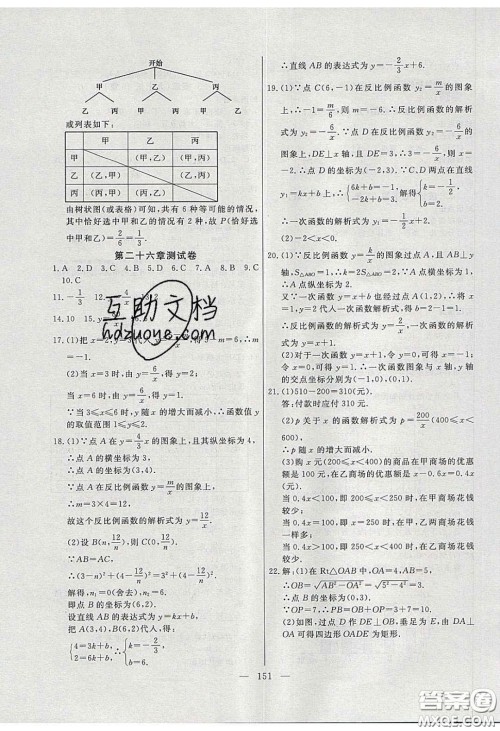 开始
甲 乙 丙
乙 丙 甲 丙 甲 乙
或列表如下:
甲 乙 丙
甲 (甲,乙) (甲,丙)
乙 (乙,甲) (乙,丙)
丙 (丙,甲) (丙,乙)
由树状图(或表格)可知,共有 6 种等可能的情况,
其中恰好选中甲和乙的情况有 2 种,故 P(恰好选
中甲和乙)=2/6=1/3.
第二十六章测试卷
1. A 2. D 3. C 4. A 5. A 6. B 7. B 8. D 9. C
10. C
11. -1/3
14. 10
17. (1)把
-1.
(2)当 x=3 时,由 y=6/x,得 y=2;
当 x=6 时,由 y=6/x,得 y=1;
当 3≤x≤6 时,y 随 x 的增大而减小,∴函数值 y
的取值范围 1≤y≤2.
18. (1)∵点 A 在 y=4/3x 的图象上,且其纵坐标为 4,
∴点 A 的横坐标为 3,
∵点 A 在反比例函数 y=m/x 的图象上,
∴m=3×4=12.
故这个反比例函数的解析式为 y=12/x.
(2)设 B(n,12/n),则 C(0,12/n).
∵AB=AC,
∴(3-n)²+(4-12/n)²=3²+(4-12/n)².
解得,n₁=0(舍去),n₂=6.
即点 B 的坐标为(6,2).
设直线 AB 的表达式为 y=kx+b,
把 A(3,4),B(6,2)代入,得
{4=3k+b, 2=6k+b, ∴{k=-2/3, b=6.
∴直线 AB 的表达式为 y=-2/3x+6.
19. (1)∵点 C(6,-1)在反比例函数 y₂=m/x 的图象
上,∴-1=m/6,∴m=-6,∴反比例函数的解析
式为 y₂=-6/x,∵点 D 在反比例函数 y₂=-6/x 的
图象上,且 DE⊥x 轴,且 DE=3,∴D 点纵坐标为
3,∴D 点坐标为(-2,3).∵C、D 两点在直线 y₁
=kx+b 上,∴{6k+b=-1, -2k+b=3. 解得{k=-1/2, b=2.
∴一次函数的解析式为 y₁=-1/2x+2.
20. (1)∵点 A 在反比例函数的图象上,且 AB⊥x
轴,S△ABO=1,∴k=2,∵点 A 横坐标为 1,
∴A 点纵坐标为 2,
∵一次函数 y=kx+b 也经过点 A,∴把 x=1,y
=2 代入一次函数解析式求得 b=1,
∴反比例函数解析式为 y=2/x,一次函数的解析
式为 y=x+1.
(2)对于一次函数 y=x+1,令 y=0,可得 x=
-1,令 x=0,可得 y=1,∴一次函数图象与 x 轴、y 轴
的交点坐标分别为(-1,0),(0,1).
21. (1)510-200=310(元).
答:付款时应付 310 元.
(2) p 关于 x 的函数解析式为 p=200/x
(400≤x<600),
∴p 随 x 的增大而减小.
(3)购 x 元(200≤x<400)在甲商场的优惠
额是 100 元,在乙商场的优惠额是 0.4x 元.
当 0.4x<100,即 200≤x<250 时,在甲商场花钱
较少;
当 0.4x=100,即 x=250 时,在甲、乙商场花钱
一样多;
当 0.4x>100,即 250<x<400 时,在乙商场花钱
较少.
22. 解:(1)在 Rt△OAB 中,OA=4,AB=5,
∴OB=√(AB²-OA²)=√(5²-4²)=3.
∵OP=7,∴BP=OP-OB=7-3=4.
(2)如图,过点 D 作 DE⊥OB,垂足为 E,由 DA⊥
OA 可得四边形 OADE 为矩形.
互助文档
hdzuoye.com
151
答案圈